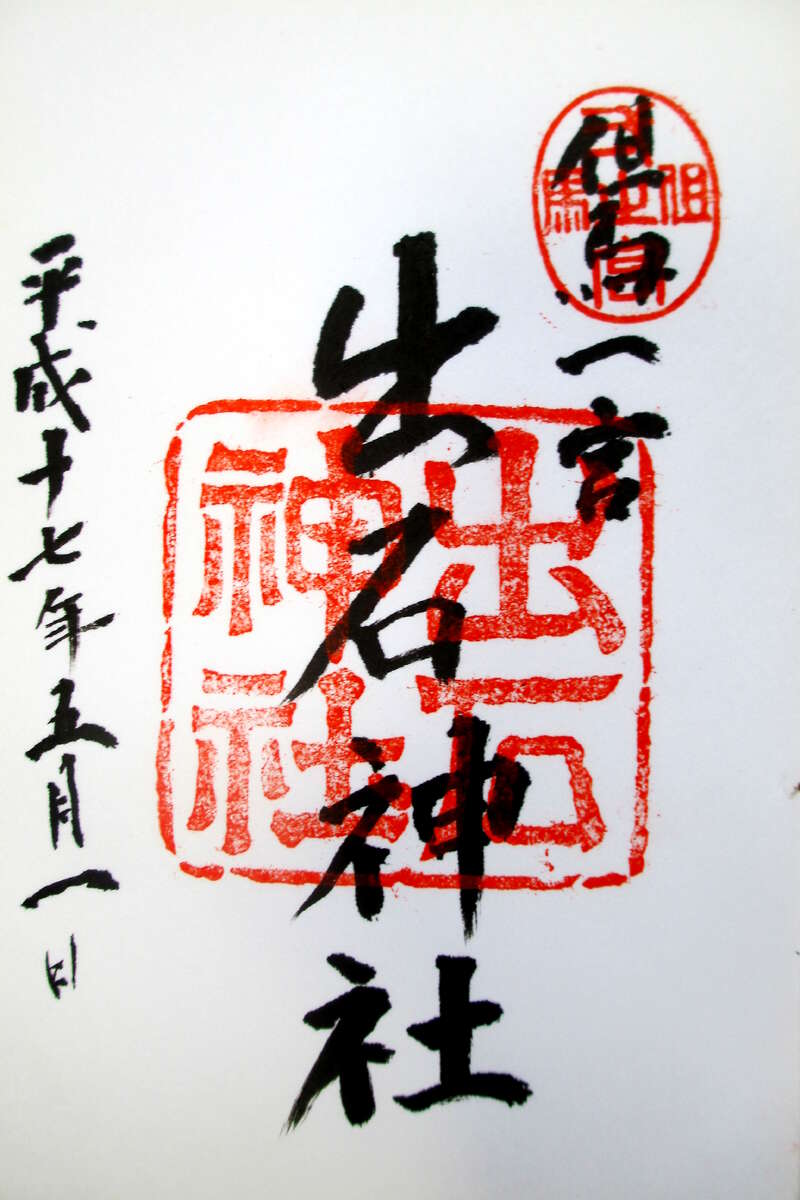 但馬
一宮
出石神社
出石神社
平成十七年五月一日